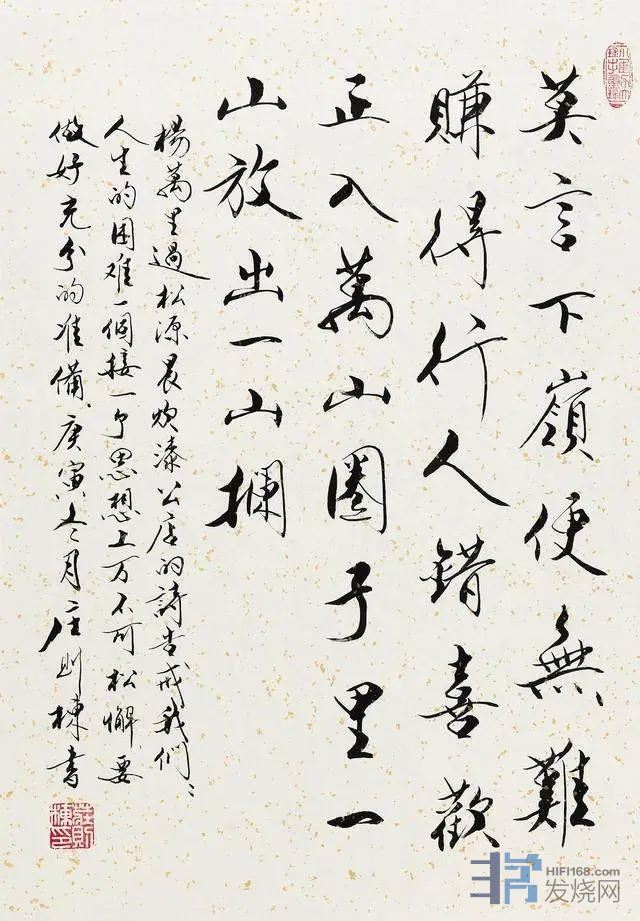 莫言下嶺便無難
賺得行人錯喜歡
正入萬山圈子里一
山放出一山攔
楊萬里過松源晨炊漆公店的詩告戒我們:
人生的困难一個接一个思想上万不可松懈要
做好充分的准備、庚寅冬月庄则棟書
莊則
棟印
HIFI168.com
发烧网